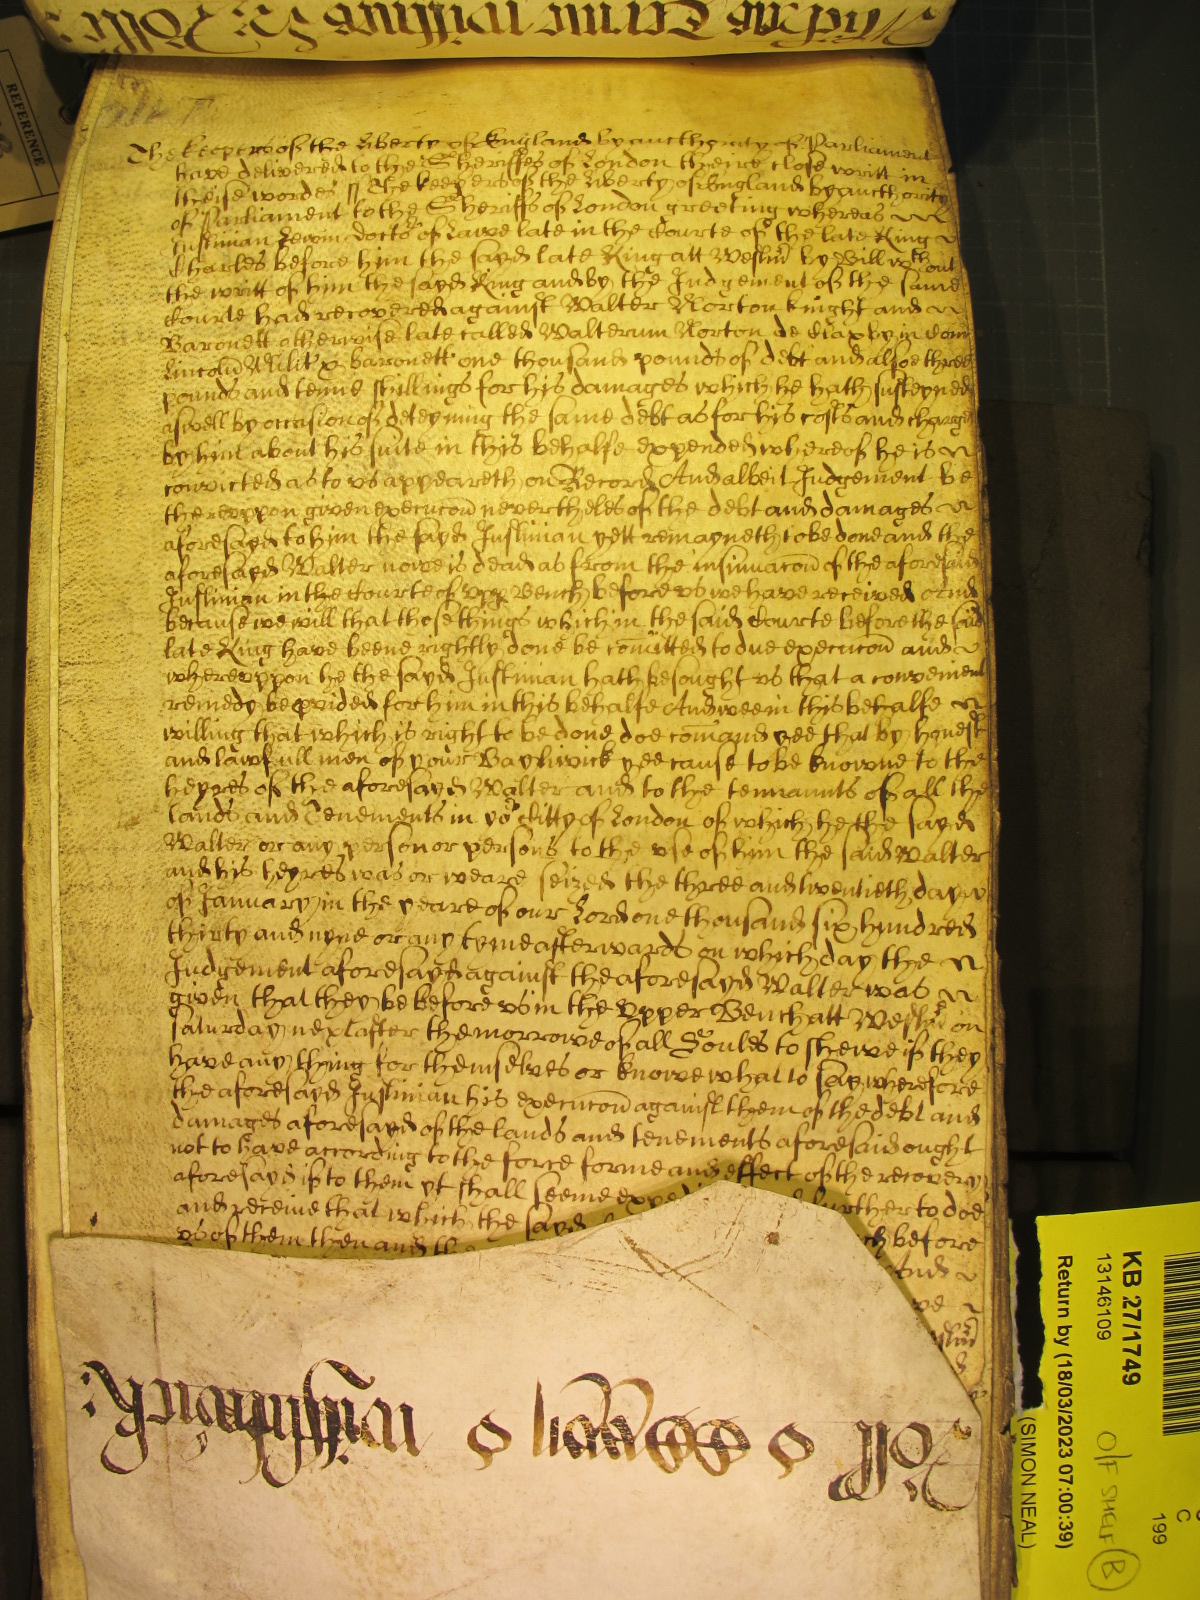 The keepers of the liberty of England by aucthority of Parliament
have delivered to the Sheriffes of London theire close writt in
theise wordes // The keepers of the liberty of England by aucthority
of Parliament to the Sheriffs of London greeting whereas
Justinian Lewin doctor of lawe late in the Courte of the late King
Charles before him the sayd late King att Westm by Bill without
the writt of him the sayd King and by the Judgement of the same
Courte had recovered against Walter Norton knight and
Baronett otherwise late called Walterum Norton de in Com
Lincoln Milit & baronett one thousand pounds of debt and alsoe three
pounds and tenne shillings for his damages which he hath susteyned
aswell by occasion of deteyning the same debt as for his costs and charges
by him about his suite in this behalfe expended whereof he is
convicted as to us appeareth on Record And albeit Judgement be
thereuppon given execucon nevertheles of the debt and damages
aforesayd to him the sayd Justinian yett remayneth to be done and the
aforesayd Walter nowe is dead as from the insinuacon of the aforesaid
Justinian in the Courte of upp Bench before us we have received and
because we will that those things which in the said Courte before the said
late King have beene rightly done be comitted to due execucon and
whereuppon he the sayd Justinian hath besought us that a convenient
remedy be pvided for him in this behalfe And wee in this behalfe
willing that which is right to be done doe comand yee that by honest
and lawfull men of your Bayliwick yee cause to be knowne to the
heyres of the aforesayd Walter and to the tennants of all the
lands and Tenements in yor Citty of London of which he the sayd
Walter or any person or persons to the use of him the said Walter
and his heyres was or weare seized the three and twentieth day
of January in the yeare of our Lord one thousand six hundred
thirty and nyne or any tyme afterwards on which day the
Judgement aforesayd against the aforesayd Walter was
given that they be before us in the Upper Bench att Westm on
Saturday next after the morrowe of all Soules to shewe if they
have any thing for themselves or knowe what to say wherefore
the aforesayd Justinian his execucon against them of the debt and
damages aforesayd of the lands and tenements aforesaid ought
not to have according to the force forme and effect of the recovery
aforesayd if to them yt shall seeme further to doe
and receive that which the sayd before
us of them then and And
KB 27/1749
13146109
Return by (18/03/2023 07:00:39)
(SIMON NEAL)
O/F SHELF B
C
199
REFERENCE